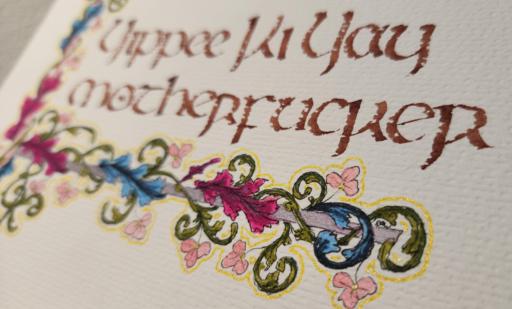 Yippee Ki Yay
Motherfucker